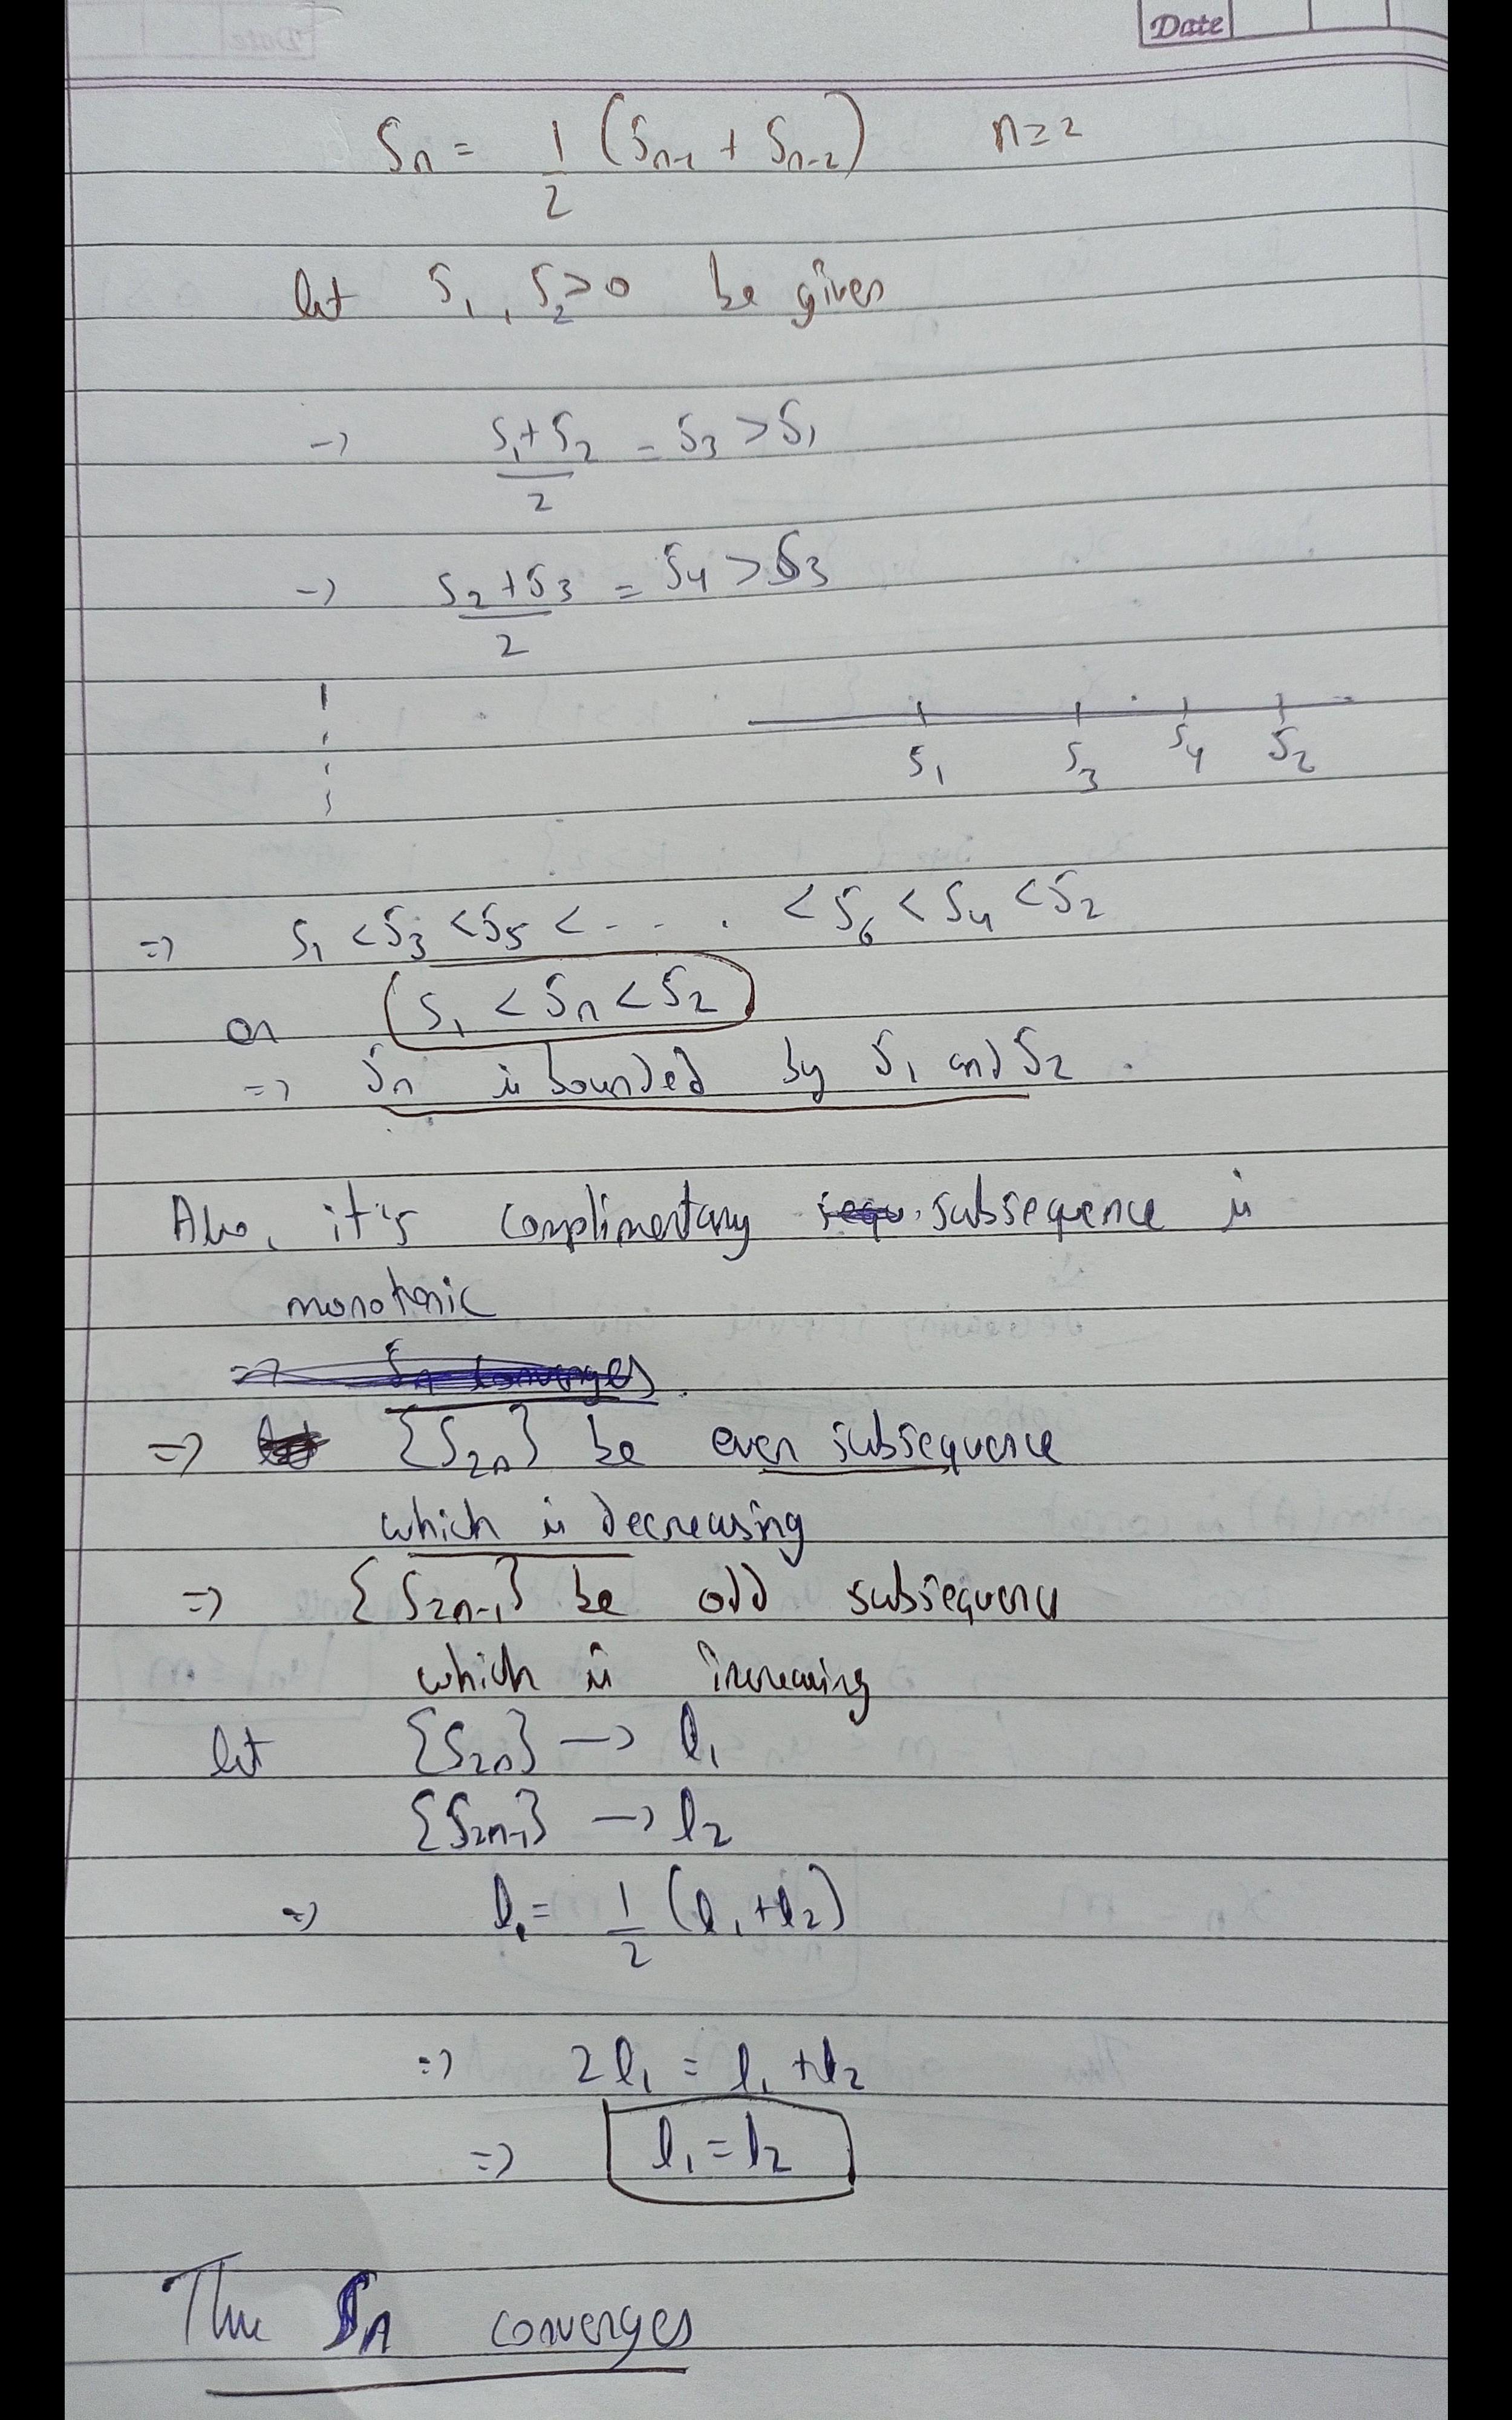 Date
Sn = 1/2 (Sn-1 + Sn-2) n≥2
let S1, S2>0 be given
→ (S1+S2)/2 = S3 > S1
→ (S2+S3)/2 = S4 > S3
S1 S3 S4 S2
⇒ S1 < S3 < S5 < - - - . < S6 < S4 < S2
or S1 < Sn < S2
⇒ Sn is bounded by S1 and S2.
Also, it's complimentary subsequence is
monotonic
⇒ Sn converges.
⇒ {S2n} be even subsequence
which is decreasing
⇒ {S2n-1} be odd subsequence
which is increasing
let {S2n} → l1
{S2n-1} → l2
⇒ l1 = 1/2 (l1+l2)
⇒ 2l1 = l1 + l2
⇒ l1 = l2
Thus Sn converges